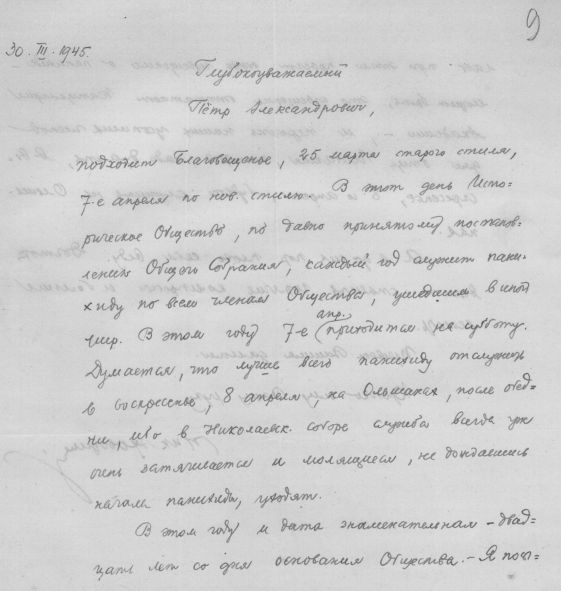 9
30. III. 1945.
Глубокоуважаемый
Пётр Александрович,
подходит Благовещенье, 25 марта старого стиля,
7-е апреля по нов. стилю. В этот день Исто=
рическое Общество, по давно принятому постанов=
лению Общого Собрания, каждый год служит пани=
хиду по всем членам Общества, ушедшим в иной
мир. В этом году 7-е апр. приходится на субботу.
Думается, что лучше всего панихиду отслужить
в воскресенье, 8 апреля, на Ольшанах, после обед=
ни, ибо в Николаевск. соборе служба всегда уж
очень затягивается и молящиеся, не дождавшись
начала панихиды, уходят.
В этом году и дата знаменательная – двад=
цать лет со дня основания Общества. – Я